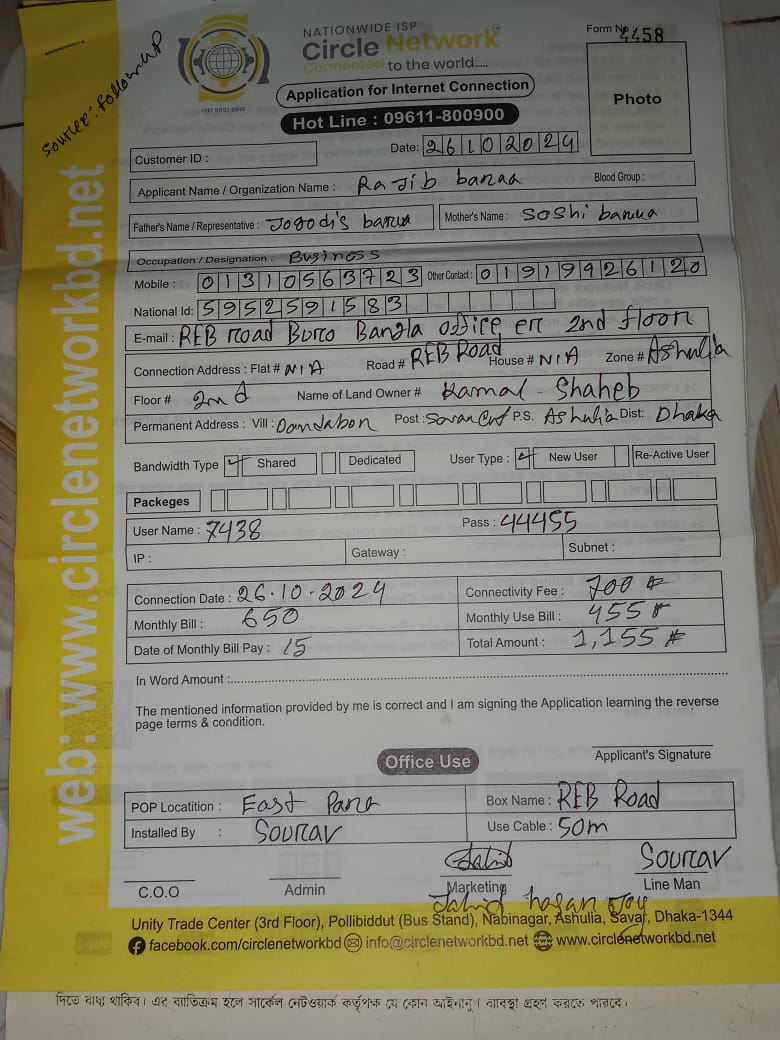 NATIONWIDE ISP
Circle Network
Connected to the world.....
ISO 9001:2015
Form No 4458
Source: Followup
Application for Internet Connection
Hot Line : 09611-800900
Photo
Customer ID :
Date: 26102024
Applicant Name / Organization Name : Rajib barua Blood Group :
Father's Name / Representative : Jogodi's barua Mother's Name : Soshi barua
Occupation / Designation : Business
Mobile : 01310563723 Other Contact : 01919926120
National Id: 5952591583
E-mail : REB road Buro Bangla office er 2nd floor
Connection Address : Flat # N/A Road # REB Road House # N/A Zone # Ashulia
Floor # 2nd Name of Land Owner # Kamal - Shaheb
Permanent Address : Vill : Dandabon Post : P.S. Ashulia Dist: Dhaka
Bandwidth Type Shared Dedicated User Type : New User Re-Active User
Packeges
User Name : 7438 Pass : 44455
IP : Gateway : Subnet :
Connection Date : 26.10.2024 Connectivity Fee : 700
Monthly Bill : 650 Monthly Use Bill : 455
Date of Monthly Bill Pay : 15 Total Amount : 1,155
In Word Amount :
The mentioned information provided by me is correct and I am signing the Application learning the reverse
page terms & condition.
Applicant's Signature
Office Use
POP Locatition : East Para Box Name : REB Road
Installed By : Sourav Use Cable : 50m
Jahid Sourav
C.O.O Admin Marketing Line Man
Jahid hasan Joy
Unity Trade Center (3rd Floor), Pollibiddut (Bus Stand), Nabinagar, Ashulia, Savar, Dhaka-1344
facebook.com/circlenetworkbd info@circlenetworkbd.net www.circlenetworkbd.net
web: www.circlenetworkbd.net
দিতে বাধ্য থাকিব। এর ব্যতিক্রম হলে সার্কেল নেটওয়ার্ক কর্তৃপক্ষ যে কোন আইনানুগ ব্যবস্থা গ্রহণ করতে পারবে।